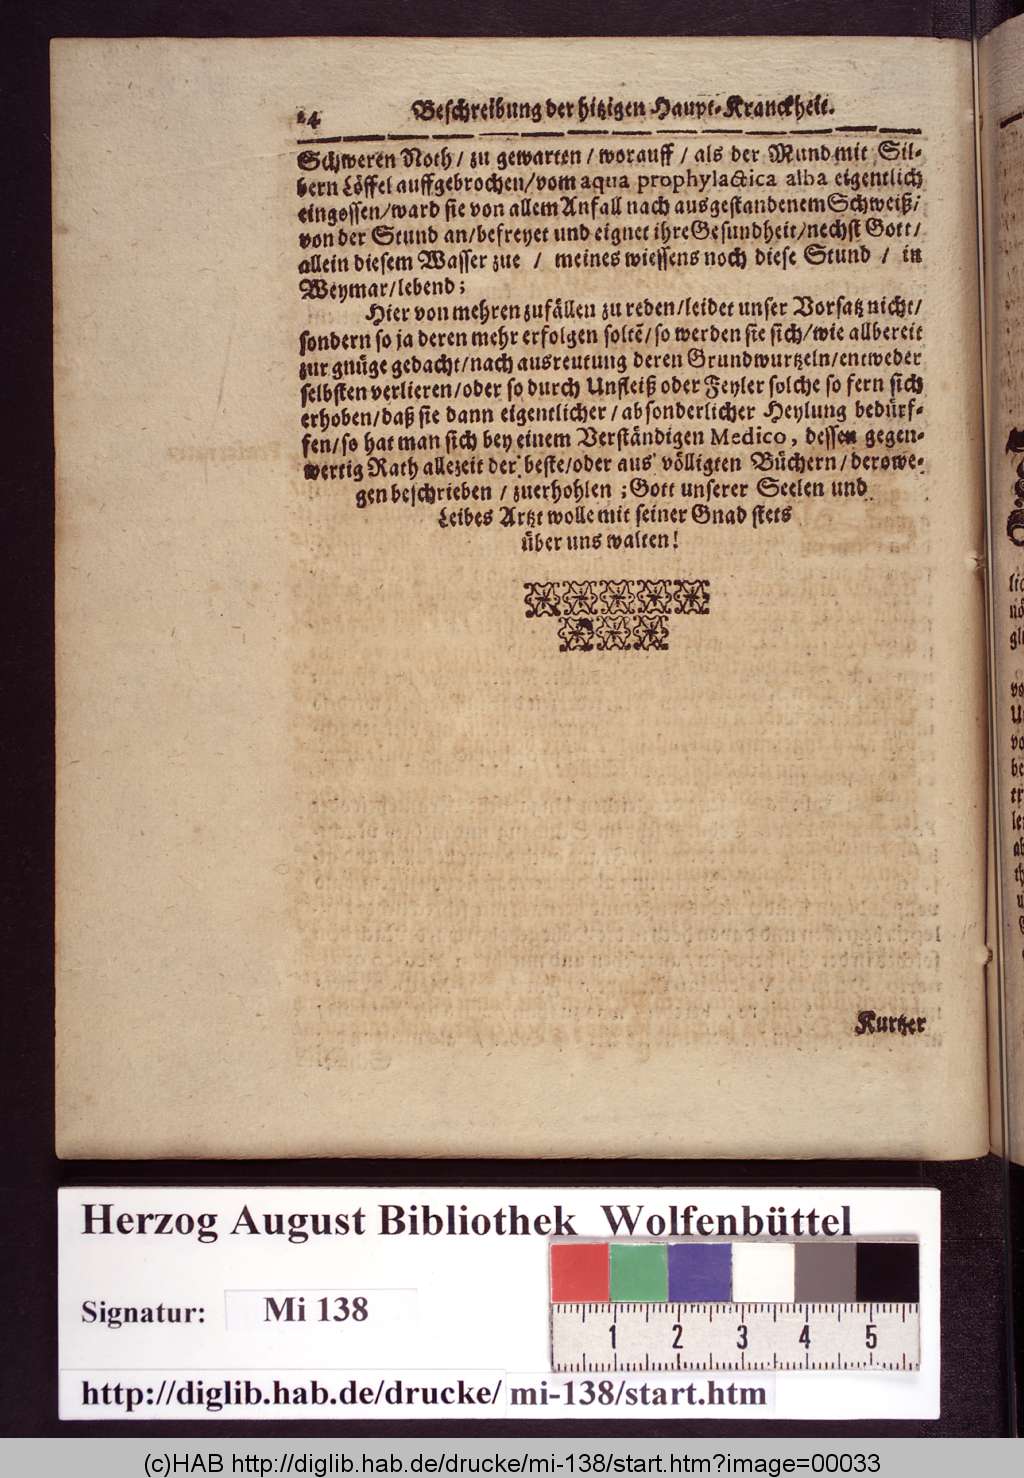 24 Beschreibung der hitzigen Haupt-Kranckheit.
Schweren Noth/ zu gewarten/ worauff/ als der Mund mit Sil-
bern Löffel auffgebrochen/ vom aqua prophylactica alba eigentlich
eingossen/ ward sie von allem Anfall nach ausgestandenem Schweiß/
von der Stund an/ befreyet und eignet ihre Gesundheit/ nechst Gott/
allein diesem Wasser zue / meines wiessens noch diese Stund / in
Weymar/ lebend;
Hier von mehren zufällen zu reden/ leidet unser Vorsatz nicht/
sondern so ja deren mehr erfolgen soltẽ/ so werden sie sich/ wie allbereit
zur gnüge gedacht/ nach ausreutung deren Grundwurtzeln/ entweder
selbsten verlieren/ oder so durch Unfleiß oder Feyler solche so fern sich
erhoben/ daß sie dann eigentlicher/ absonderlicher Heylung bedürf-
fen/ so hat man sich bey einem Verständigen Medico, dessen gegen-
wertig Rath allezeit der beste/ oder aus völligten Büchern/ derowe-
gen beschrieben / zuerhohlen ; Gott unserer Seelen und
Leibes Artzt wolle mit seiner Gnad stets
über uns walten!
Kurtzer
Herzog August Bibliothek Wolfenbüttel
Signatur: Mi 138
1 2 3 4 5
http://diglib.hab.de/drucke/ mi-138/start.htm
(c)HAB http://diglib.hab.de/drucke/mi-138/start.htm?image=00033